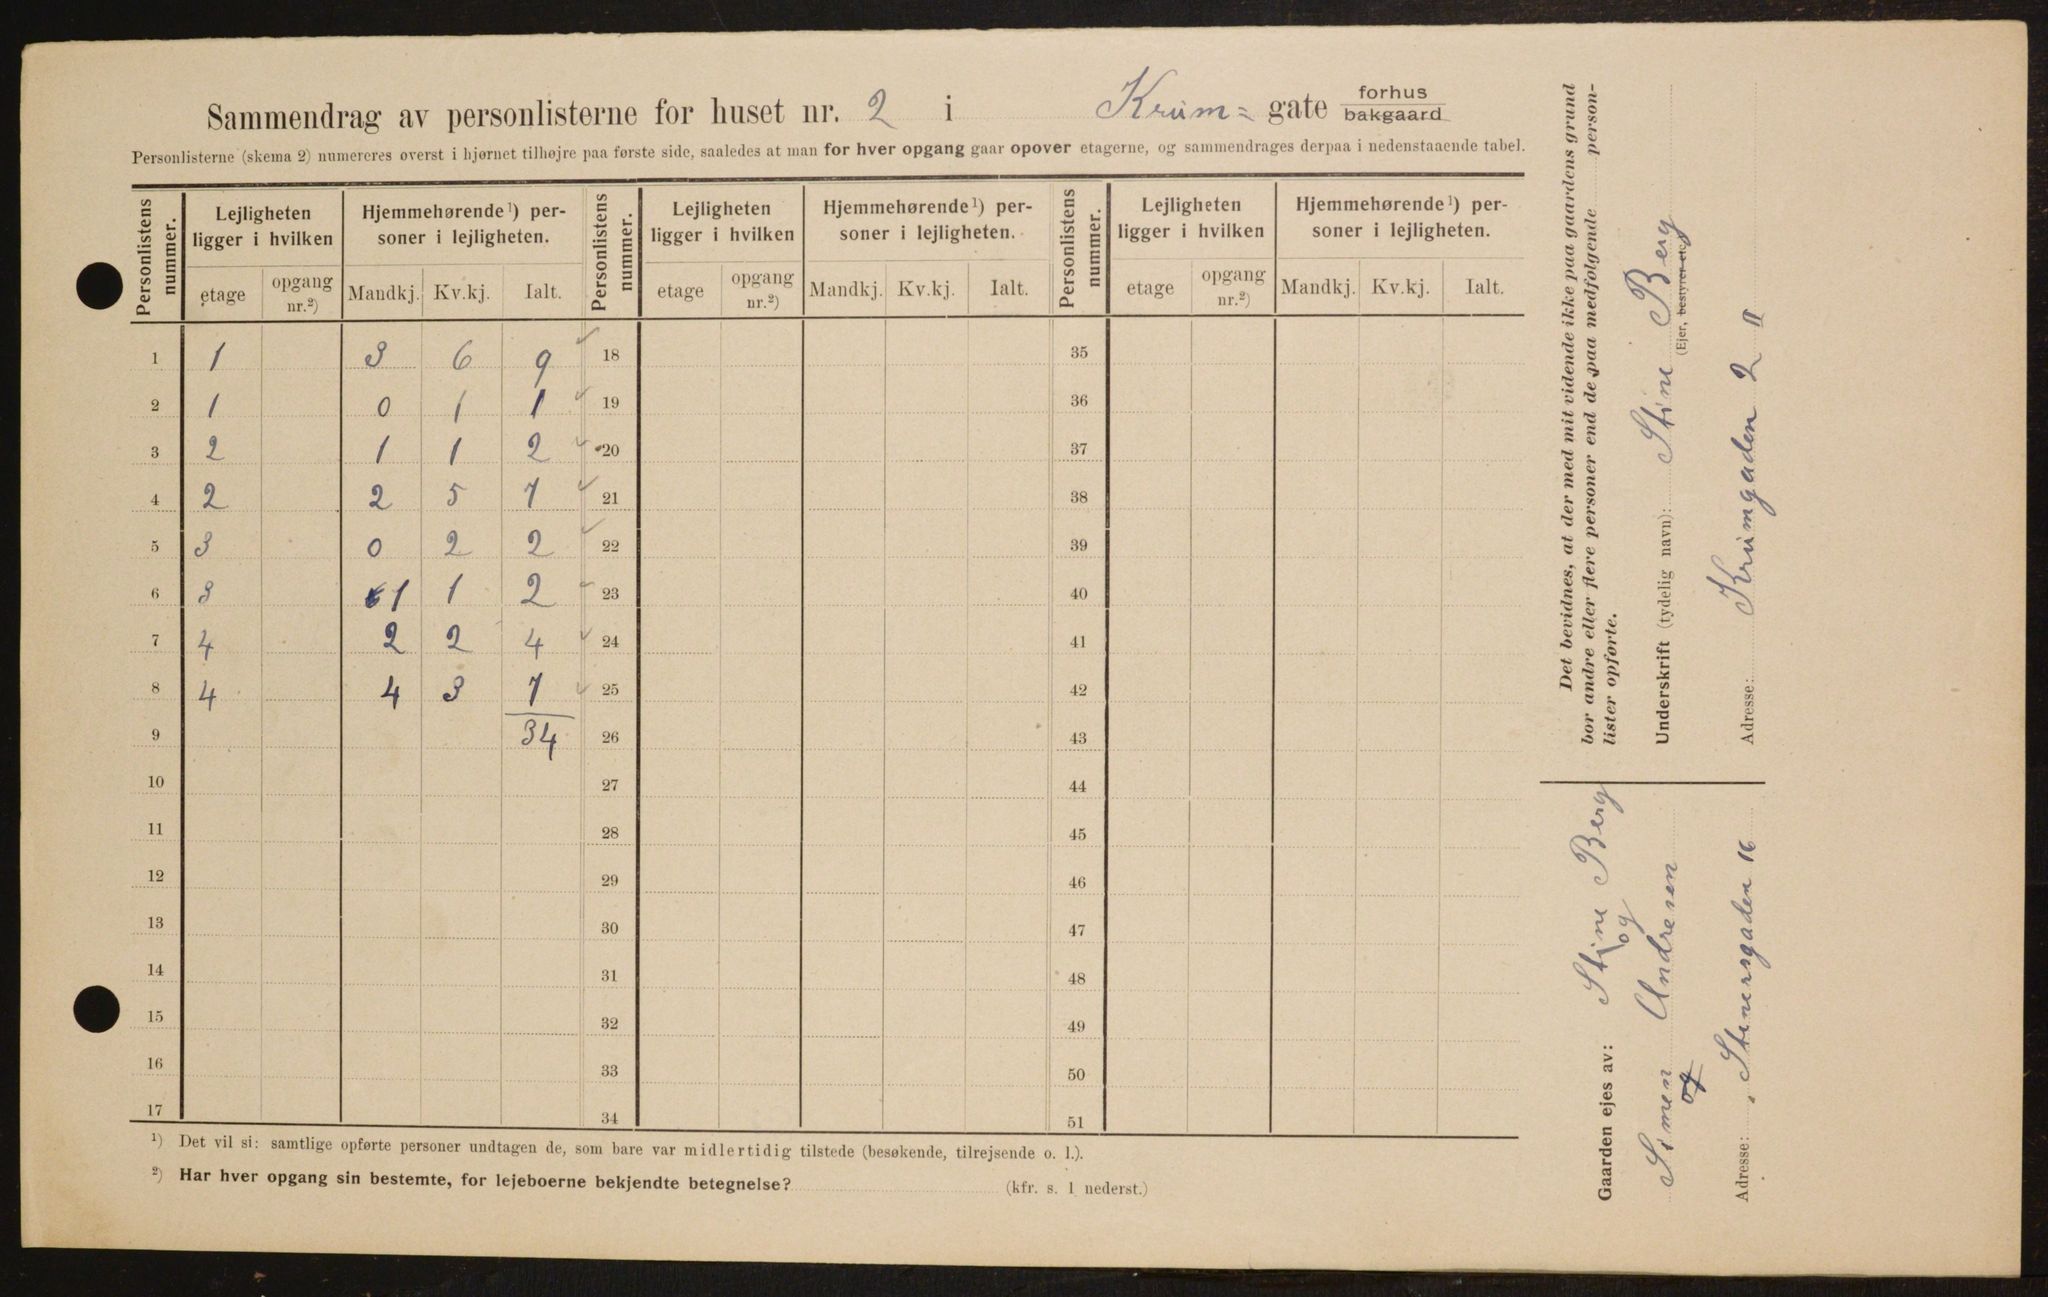 Sammendrag av personlisterne for huset nr. 2 i Krum= gate forhus bakgaard
Personlisterne (skema 2) numereres øverst i hjørnet tilhøjre paa første side, saaledes at man for hver opgang gaar opover etagerne, og sammendrages derpaa i nedenstaaende tabel.
Personlistens nummer. Lejligheten ligger i hvilken Hjemmehørende¹) personer i lejligheten. Personlistens nummer. Lejligheten ligger i hvilken Hjemmehørende¹) personer i lejligheten. Personlistens nummer. Lejligheten ligger i hvilken Hjemmehørende¹) personer i lejligheten.
etage opgang nr.²) Mandkj. Kv.kj. Ialt. etage opgang nr.²) Mandkj. Kv.kj. Ialt. etage opgang nr.²) Mandkj. Kv.kj. Ialt.
1 1 3 6 9 18 35
2 1 0 1 1 19 36
3 2 1 1 2 20 37
4 2 2 5 7 21 38
5 3 0 2 2 22 39
6 3 1 1 2 23 40
7 4 2 2 4 24 41
8 4 4 3 7 25 42
9 34 26 43
10 27 44
11 28 45
12 29 46
13 30 47
14 31 48
15 32 49
16 33 50
17 34 51
¹) Det vil si: samtlige opførte personer undtagen de, som bare var midlertidig tilstede (besøkende, tilrejsende o. l.).
²) Har hver opgang sin bestemte, for lejeboerne bekjendte betegnelse? (kfr. s. 1 nederst.)
Det bevidnes, at der med mit vidende ikke paa gaardens grund
bor andre eller flere personer end de paa medfølgende person-
lister opførte.
Underskrift (tydelig navn): Stine Berg
(Ejer, bestyrer etc.)
Adresse: Krumgaden 2 II
Gaarden ejes av: Stine Berg
og
Simen Andresen
og
Adresse: Stenersgaden 16